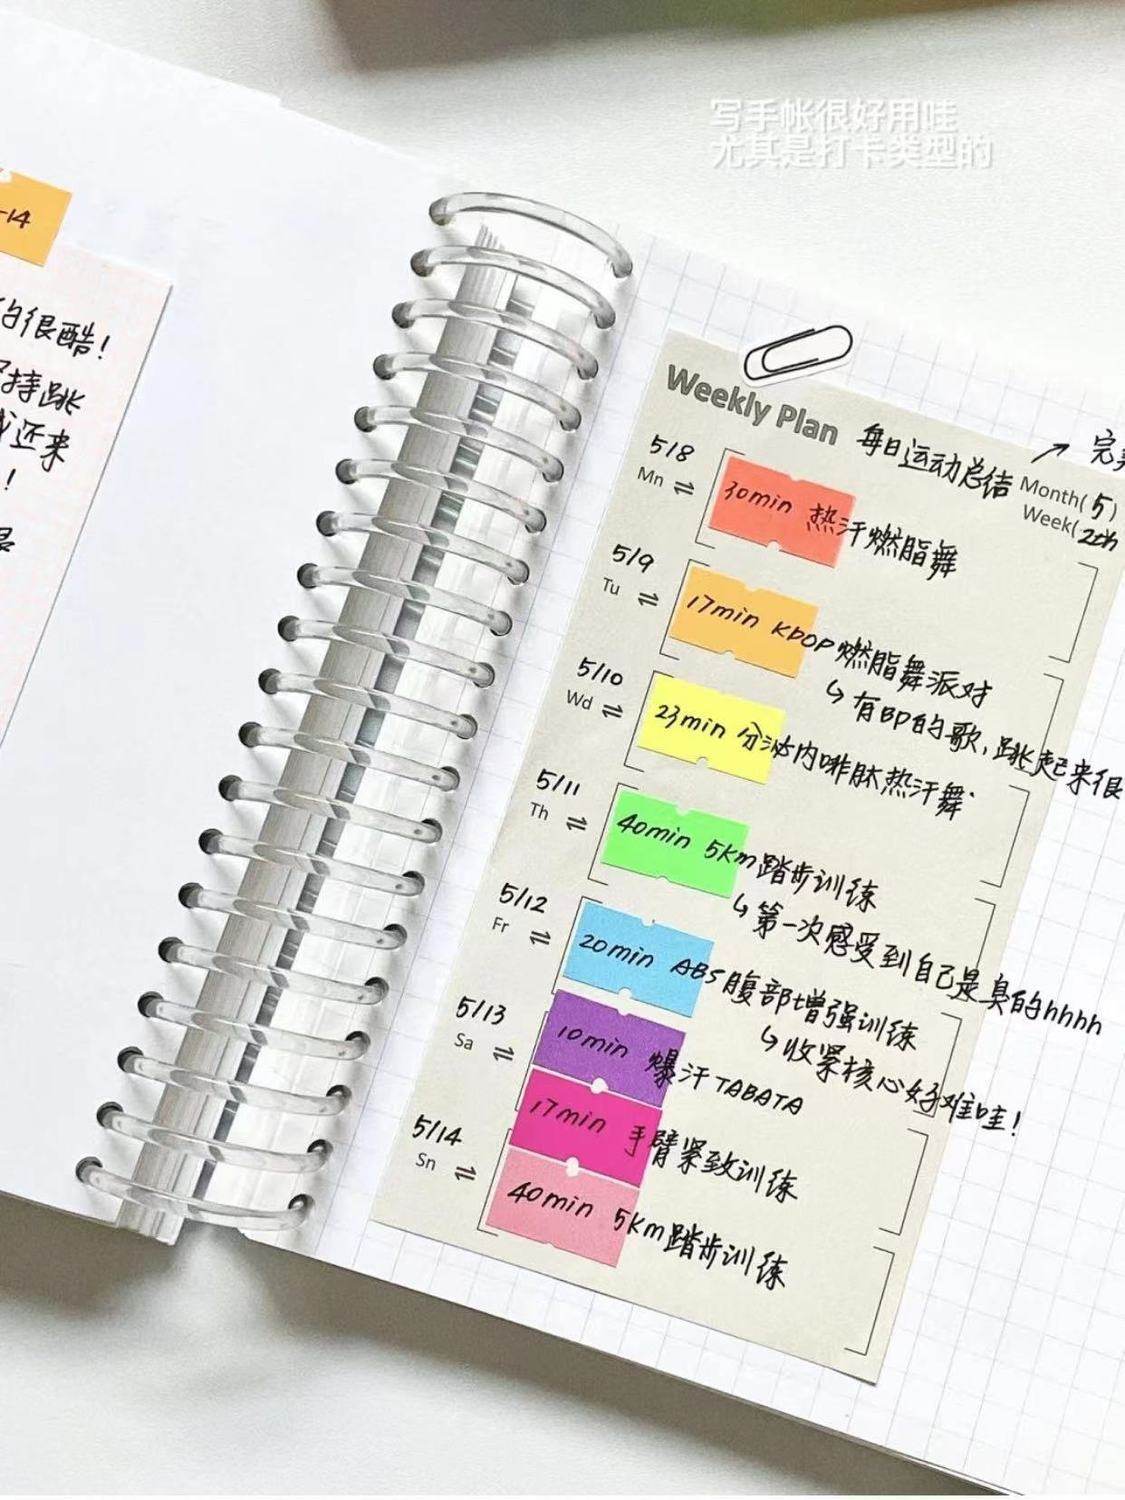 写手帐很好用哇
尤其是打卡类型的
-14
的很酷!
坚持跳
还来
!
Weekly Plan
每日运动总结
Month(5)
Week(2th
5/8
Mn
30min 热汗燃脂舞
5/9
Tu
17min KPOP燃脂舞派对
有BP的歌,跳起来很
5/10
Wd
23min 分泌内啡肽热汗舞
5/11
Th
40min 5km踏步训练
第一次感受到自己是真的hhhh
5/12
Fr
20min ABS腹部增强训练
收紧核心好难哇!
5/13
Sa
10min 爆汗TABATA
17min 手臂紧致训练
5/14
Sn
40min 5km踏步训练